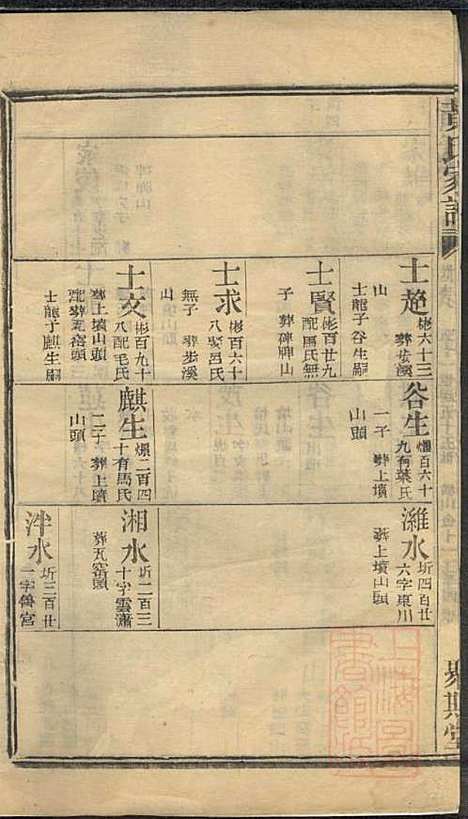 黃氏家譜
士趙 彬六十三
葬步溪
山
士龍子谷生嗣
士賢 彬百廿九
配馬氏無
子 葬碑牌山
士求 彬百六十
八娶呂氏
無子 葬步溪
山
士文 彬百九十
八配毛氏
葬上墳山頭
士龍子麒生嗣
谷生 百六十
九有葉氏
一子 葬上墳
山頭
麒生 二百四
十有馬氏
二子 葬上墳
山頭
濰水 圻四百廿
六字東川
葬上墳山頭
湘水 圻二百三
十字雲瀟
葬瓦窑頭
泮水 圻三百廿
一字
上海
書館